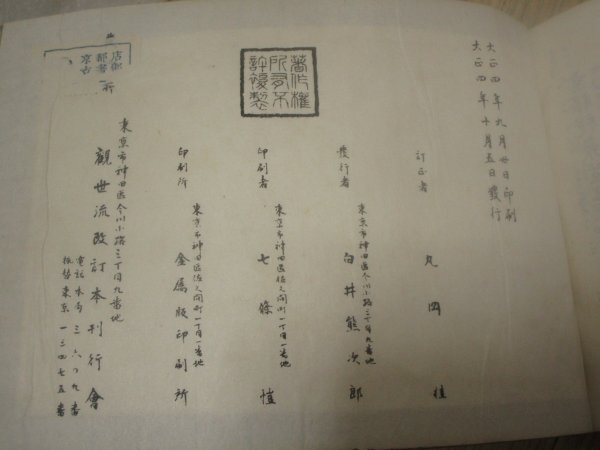 大正四年九月廿日印刷
大正四年十月五日發行
著作權
所有不
許複製
訂正者 丸岡桂
東京市神田區今川小路三丁目九番地
發行者 白井熊次郎
東京市神田區佐久間町一丁目一番地
印刷者 七條愷
東京市神田區佐久間町一丁目一番地
印刷所 金属版印刷所
東京市神田區今川小路三丁目九番地
發行所 觀世流改訂本刊行會
電話本局三六〇九番
振替東京一二四七五番